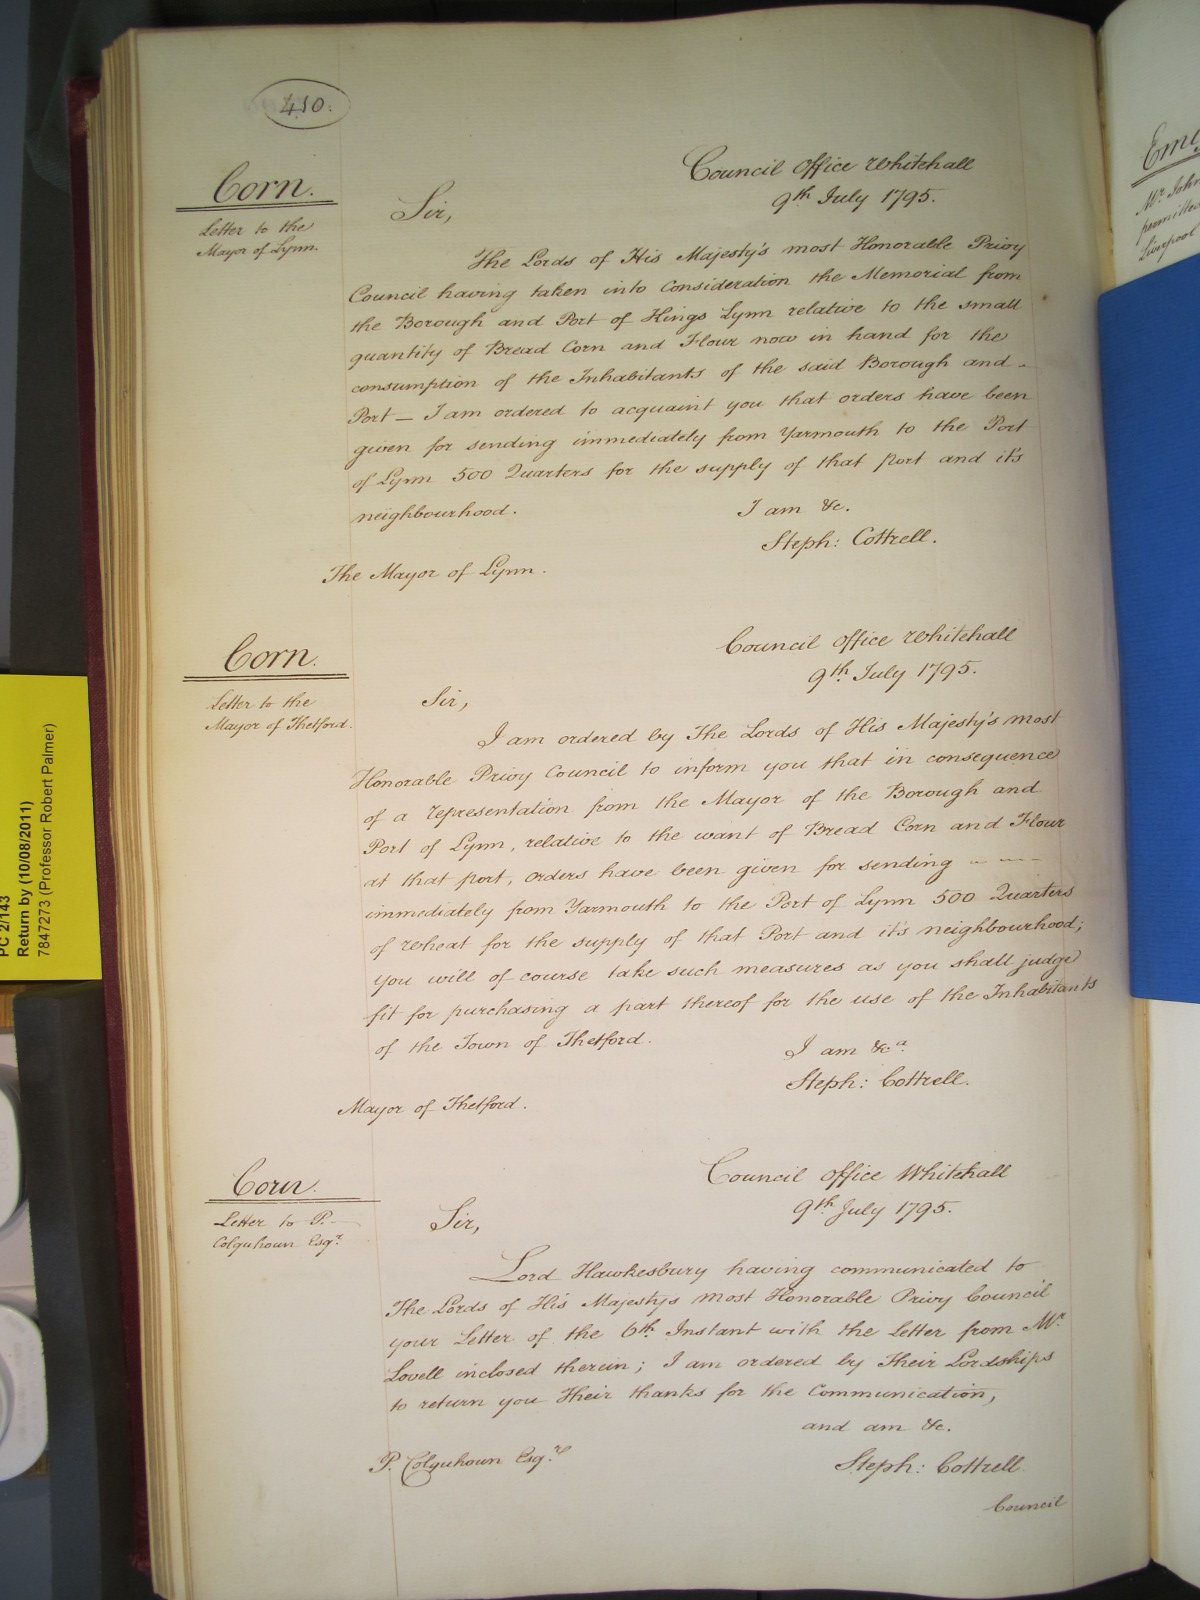 450.
Corn.
Letter to the
Mayor of Lynn.
Council Office Whitehall
9th July 1795.
Sir,
The Lords of His Majesty's most Honorable Privy
Council having taken into Consideration the Memorial from
the Borough and Port of Kings Lynn relative to the small
quantity of Bread Corn and Flour now in hand for the
consumption of the Inhabitants of the said Borough and -
Port — I am ordered to acquaint you that orders have been
given for sending immediately from Yarmouth to the Port
of Lynn 500 Quarters for the supply of that Port and it's
neighbourhood.
I am &c.
Steph: Cottrell.
The Mayor of Lynn.
Corn.
Letter to the
Mayor of Thetford.
Council Office Whitehall
9th. July 1795.
Sir,
I am ordered by The Lords of His Majesty's most
Honorable Privy Council to inform you that in consequence
of a representation from the Mayor of the Borough and
Port of Lynn, relative to the want of Bread Corn and Flour
at that port, orders have been given for sending - - -
immediately from Yarmouth to the Port of Lynn 500 Quarters
of Wheat for the supply of that Port and it's neighbourhood;
you will of course take such measures as you shall judge
fit for purchasing a part thereof for the use of the Inhabitants
of the Town of Thetford.
I am &ca.
Steph: Cottrell.
Mayor of Thetford.
Corn.
Letter to P. —
Colquhoun Esqr.
Council Office Whitehall
9th July 1795.
Sir,
Lord Hawkesbury having communicated to
The Lords of His Majesty's most Honorable Privy Council
your Letter of the 6th. Instant with the Letter from Mr.
Lovell inclosed therein; I am ordered by Their Lordships
to return you Their thanks for the Communication,
and am &c.
P. Colquhoun Esq.re
Steph: Cottrell
Council
Mr. John
permitted
Liverpool
PC 2/143
Return by (10/08/2011)
7847273 (Professor Robert Palmer)